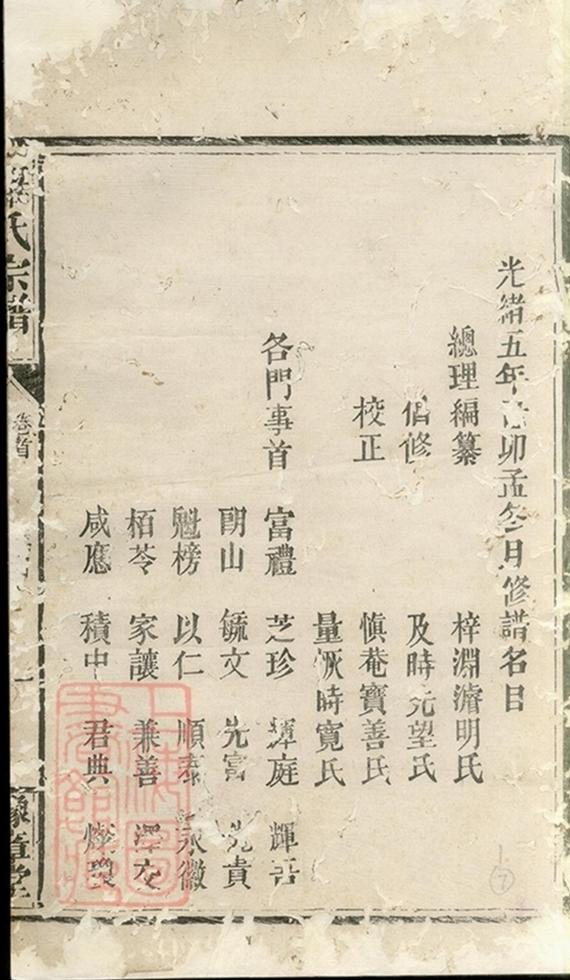 光緒五年卯孟冬月修譜名目
總理編纂 梓淵濬明氏
倡修 及時元望氏
校正 慎菴寶善氏
量恢時寬氏
各門事首 富禮 芝珍 庭 輝吾
朗山 毓文 先富 先貴
魁榜 以仁 順泰 永徽
栢苓 家讓 兼善 澤交
咸應 積中 君典 燦環
氏宗譜
卷首
一